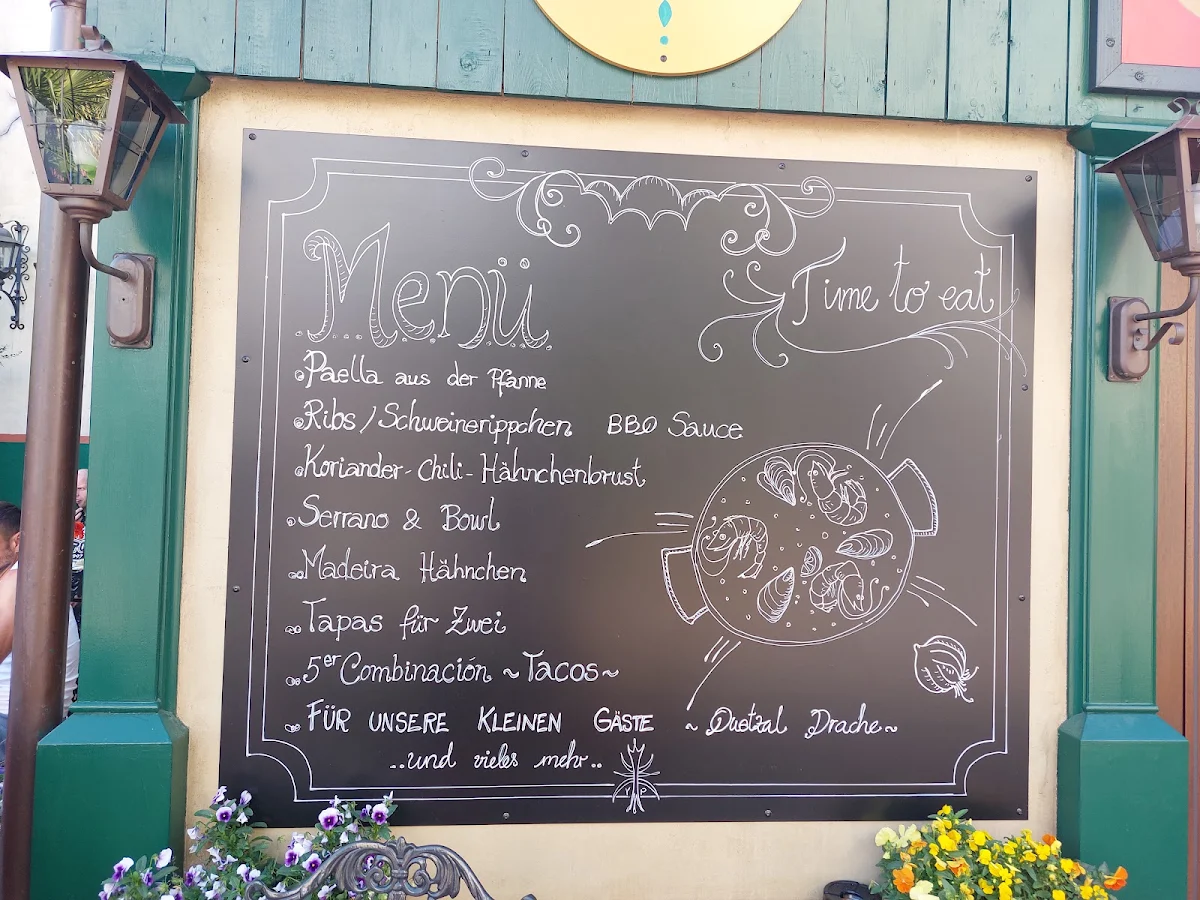 Menü
Time to eat
Paella aus der Pfanne
Ribs / Schweinerippchen BBQ Sauce
Koriander-Chili-Hähnchenbrust
Serrano & Bowl
Madeira Hähnchen
Tapas für Zwei
5er Combinación ~Tacos~
FÜR UNSERE KLEINEN GÄSTE ~ Quetzal Drache~
..und vieles mehr..